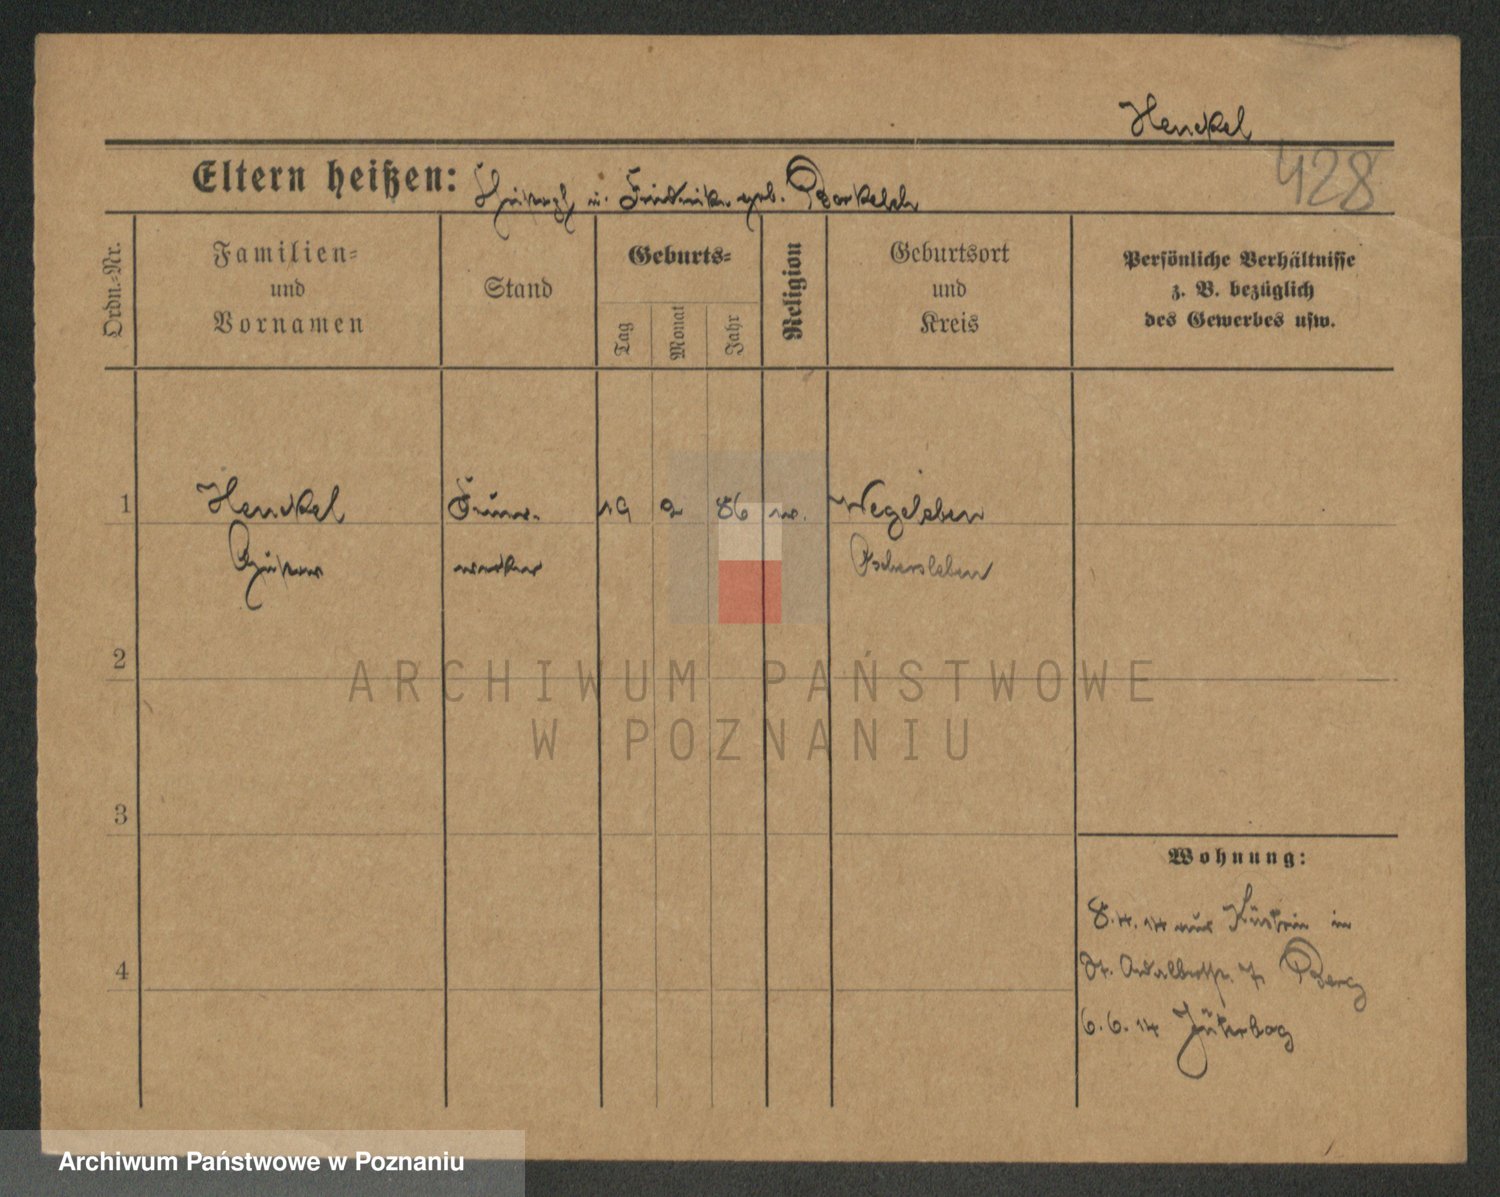 Henckel
428
Eltern heißen: Heinrich u. Friederike geb.
Ordn.-Nr.
Familien-
und
Vornamen
Stand
Geburts-
Tag
Monat
Jahr
Religion
Geburtsort
und
Kreis
Persönliche Verhältnisse
z. B. bezüglich
des Gewerbes usw.
1 Henckel 19 2 86 Wegeleben
Gustav Oschersleben
2
ARCHIWUM PAŃSTWOWE
W POZNANIU
3
Wohnung:
8.4.14 aus Küstrin in
4
St. Adalbertstr. 7, Berg
6.6.14 Jüterbog
Archiwum Państwowe w Poznaniu